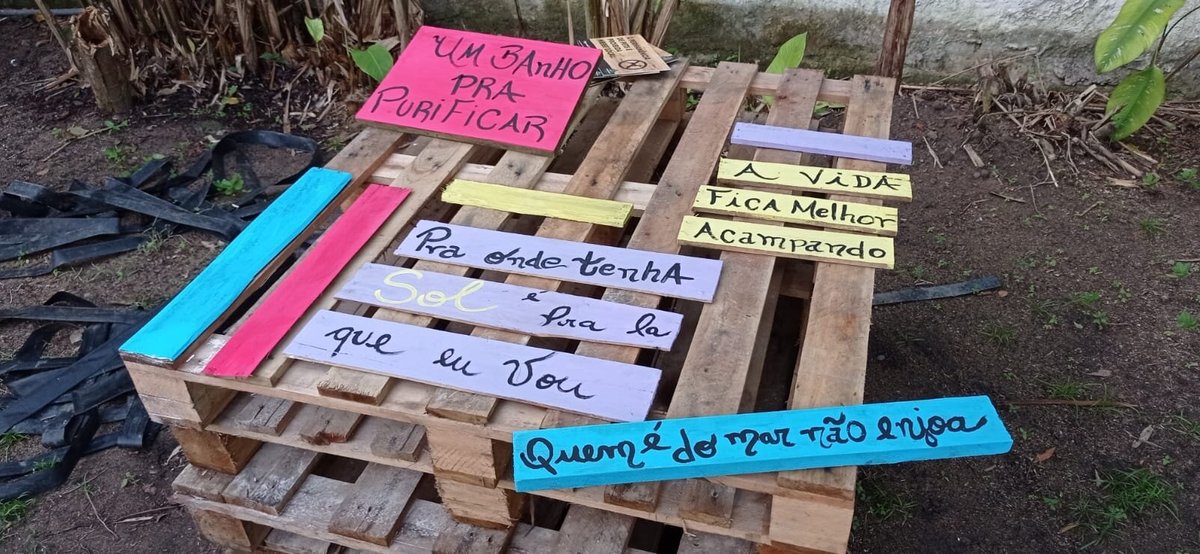 UM BANHO
PRA
PURIFICAR
A VIDA
FICA MELHOR
ACAMPANDO
Pra onde tenhA
Sol é Pra la
que eu vou
Quem é do mar não enjoa